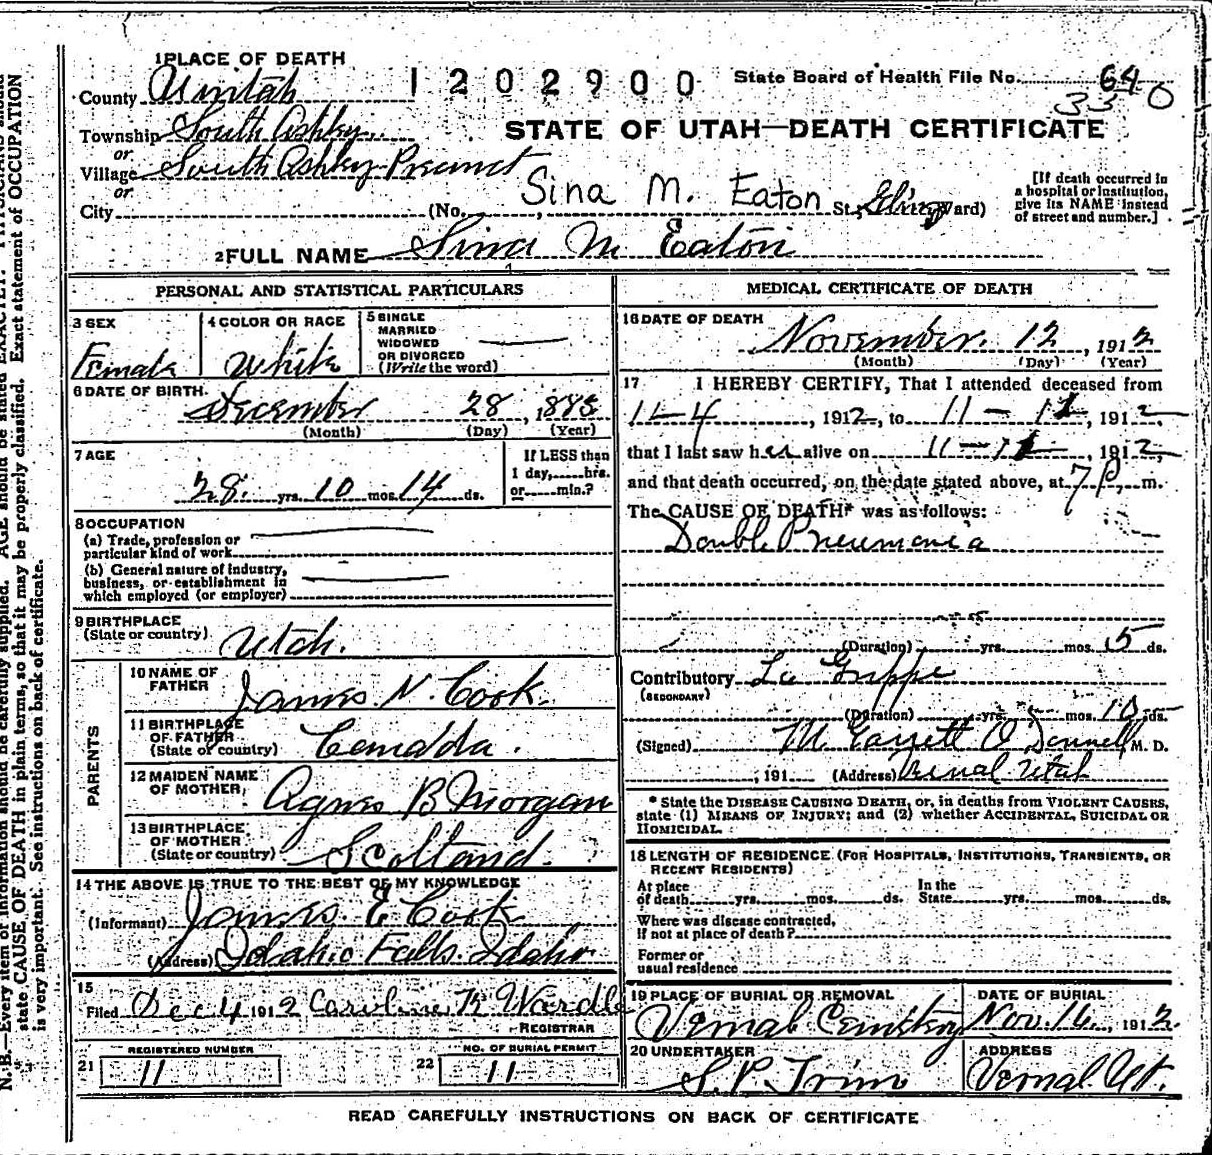 1 PLACE OF DEATH
County Uintah 1202900 State Board of Health File No. 64
330
Township South Ashley
or
Village South Ashley Precinct
or
City (No. Sina M. Eaton St.; Ward)
STATE OF UTAH—DEATH CERTIFICATE
[If death occurred in a hospital or institution, give its NAME instead of street and number.]
2 FULL NAME Sina M Eaton
PERSONAL AND STATISTICAL PARTICULARS
3 SEX
Female
4 COLOR OR RACE
White
5 SINGLE
MARRIED
WIDOWED
OR DIVORCED
(Write the word)
6 DATE OF BIRTH
December 28, 1883
(Month) (Day) (Year)
7 AGE
28 yrs. 10 mos. 14 ds.
If LESS than
1 day, hrs.
or min.?
8 OCCUPATION
(a) Trade, profession or
particular kind of work
(b) General nature of industry,
business, or establishment in
which employed (or employer)
9 BIRTHPLACE
(State or country) Utah.
PARENTS
10 NAME OF
FATHER James N. Cook.
11 BIRTHPLACE
OF FATHER
(State or country) Canadda.
12 MAIDEN NAME
OF MOTHER Agnes B Morgan
13 BIRTHPLACE
OF MOTHER
(State or country) Scotland.
14 THE ABOVE IS TRUE TO THE BEST OF MY KNOWLEDGE
(Informant) James E Cook
(Address) Idaho Falls. Idaho.
15
Filed Dec 4 1912 Caroline K Wardle
REGISTRAR
REGISTERED NUMBER
21 11
NO. OF BURIAL PERMIT
22 11
MEDICAL CERTIFICATE OF DEATH
16 DATE OF DEATH
November. 12, 1912
(Month) (Day) (Year)
17 I HEREBY CERTIFY, That I attended deceased from
11-4, 1912, to 11-12, 1912,
that I last saw her alive on 11-12, 1912,
and that death occurred, on the date stated above, at 7 P. m.
The CAUSE OF DEATH* was as follows:
Double Pneumonia
(Duration) yrs. mos. 5 ds.
Contributory La Grippe
(SECONDARY)
(Duration) yrs. mos. 10 ds.
(Signed) M Garrett O'Donnell M. D.
, 191 (Address) Vernal Utah
* State the DISEASE CAUSING DEATH, or, in deaths from VIOLENT CAUSES,
state (1) MEANS OF INJURY; and (2) whether ACCIDENTAL, SUICIDAL OR
HOMICIDAL.
18 LENGTH OF RESIDENCE (FOR HOSPITALS, INSTITUTIONS, TRANSIENTS, OR
RECENT RESIDENTS)
At place
of death yrs. mos. ds.
In the
State yrs. mos. ds.
Where was disease contracted,
If not at place of death?
Former or
usual residence
19 PLACE OF BURIAL OR REMOVAL
Vernal Cemetery
DATE OF BURIAL
Nov. 16, 1912.
20 UNDERTAKER
S. P. Trim
ADDRESS
Vernal Ut.
READ CAREFULLY INSTRUCTIONS ON BACK OF CERTIFICATE
N. B.—Every item of information should be carefully supplied. AGE should be stated EXACTLY. PHYSICIANS should
state CAUSE OF DEATH in plain terms, so that it may be properly classified. Exact statement of OCCUPATION
is very important. See instructions on back of certificate.